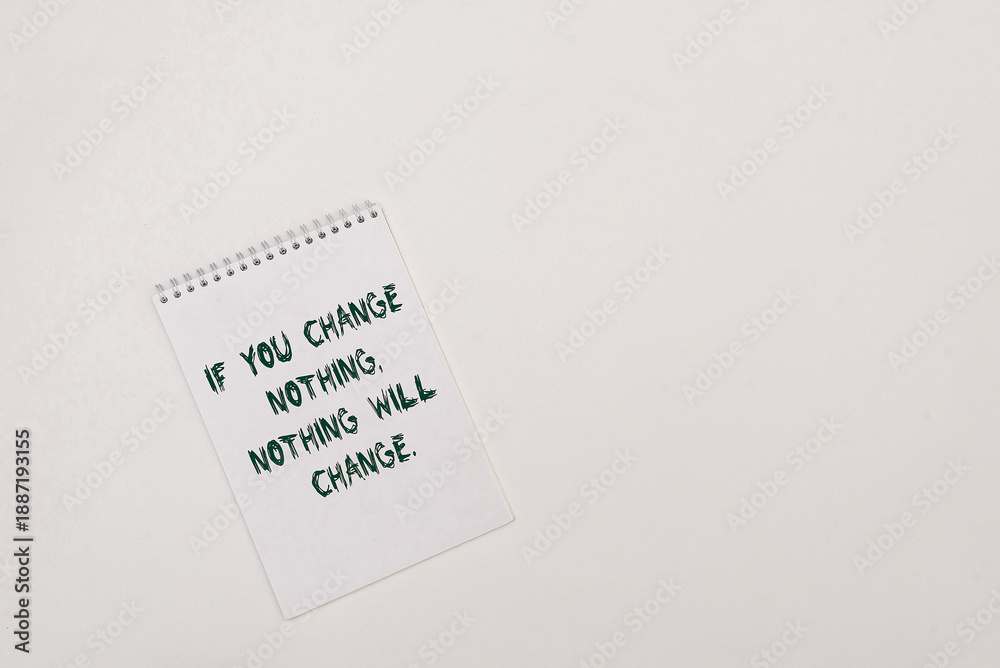 IF YOU CHANGE
NOTHING,
NOTHING WILL
CHANGE.
Adobe Stock | #1887193155
Adobe Stock